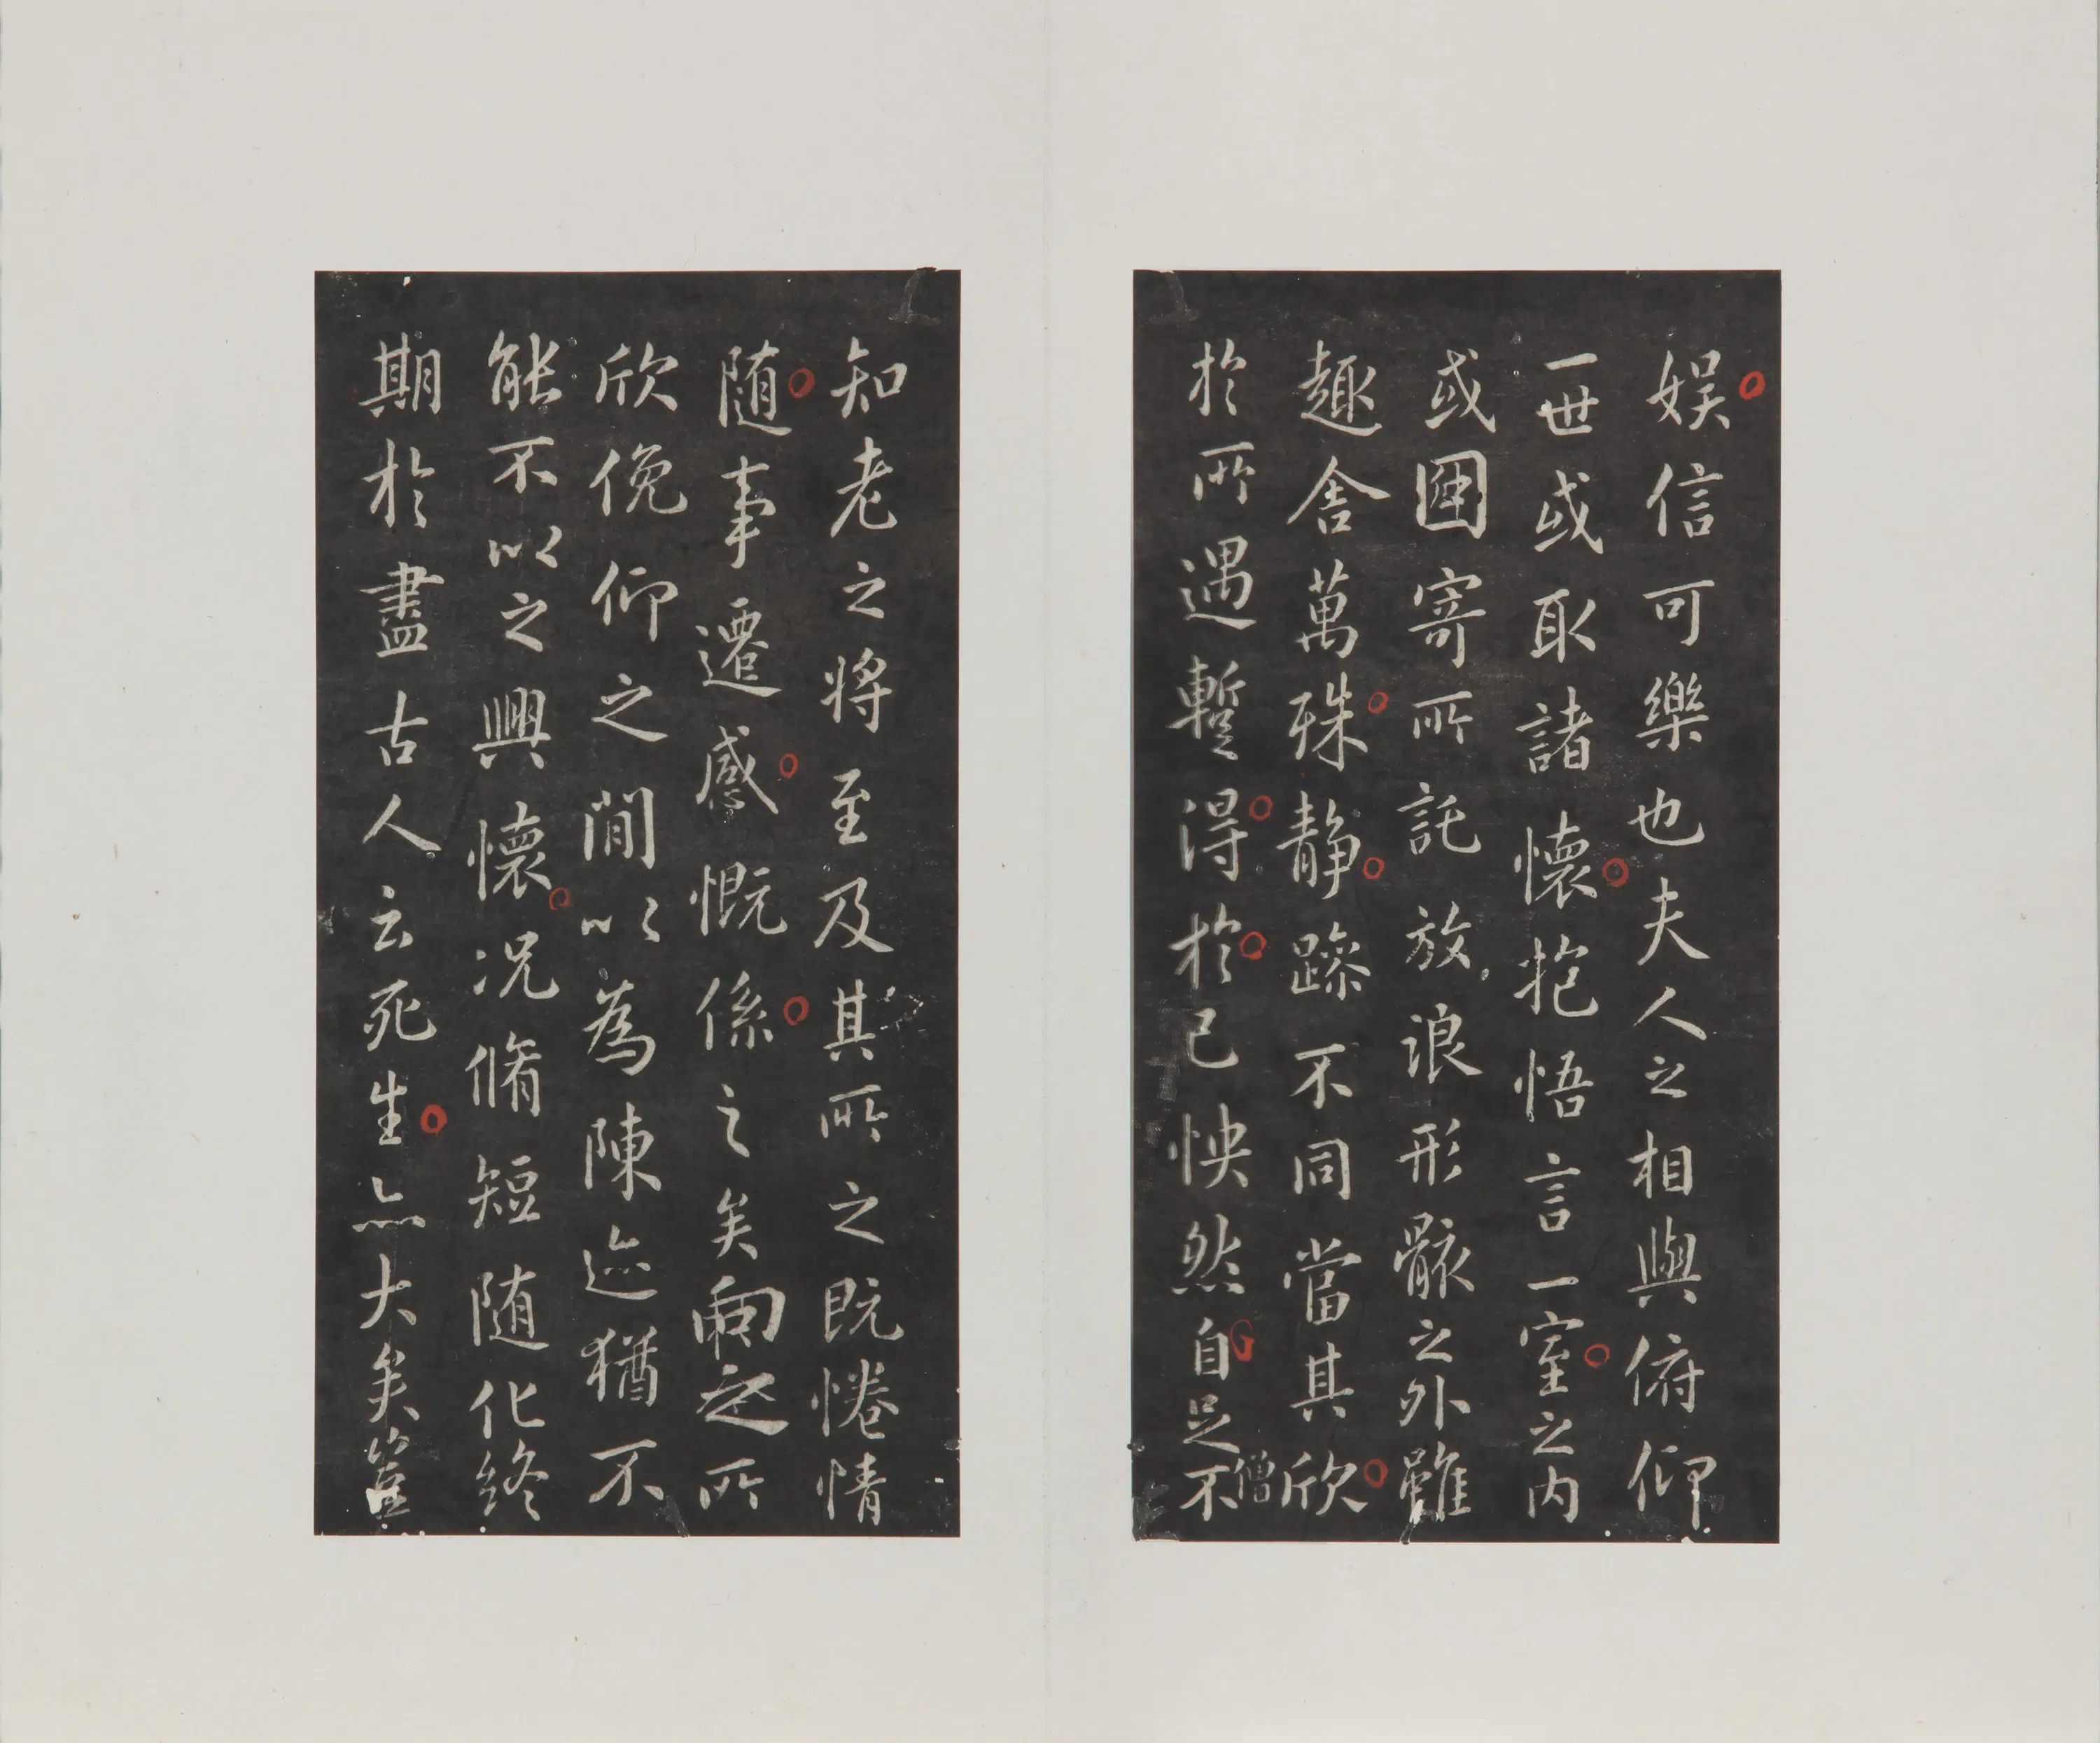 娱信可樂也夫人之相與俯仰
一世或取諸懷抱悟言一室之内
或因寄所託放浪形骸之外雖
趣舍萬殊静躁不同當其欣
僧
於所遇暫得於己怏然自足不
知老之將至及其所之既惓情
随事遷感慨係之矣向之所
欣俛仰之閒以為陳迹猶不
能不以之興懷况脩短随化終
期於盡古人云死生亦大矣豈